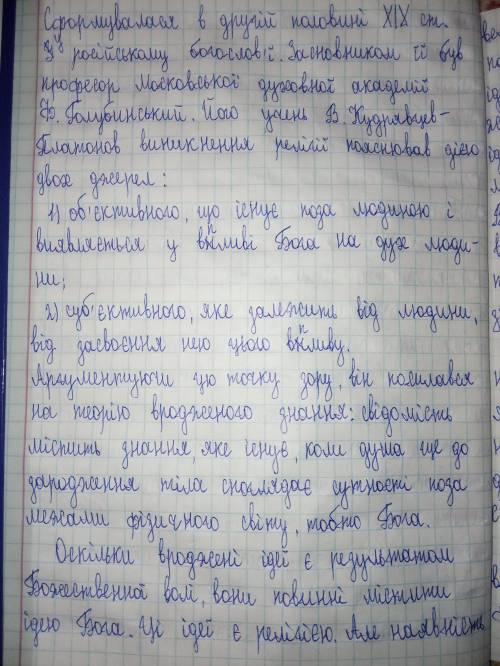 Сформувалася в другій половині XIX ст.
У російському богослов'ї. Засновником її був
професор Московської духовної академії
Ф. Голубинський. Його учень В. Кудрявцев-
Платонов виникнення релігії пояснював дією
двох джерел:
1) об'єктивного, що існує поза людиною і
виявляється у впливі Бога на дух люди-
ни;
2) суб'єктивного, яке залежить від людини,
від засвоєння нею цього впливу.
Аргументуючи цю точку зору, він посилався
на теорію вродженого знання: свідомість
містить знання, яке існує, коли душа ще до
зародження тіла споглядає сутності поза
межами фізичного світу, тобто Бога.
Оскільки вроджені ідеї є результатом
Божественної волі, вони повинні містити
ідею Бога. Ці ідеї є релігією. Але наявність